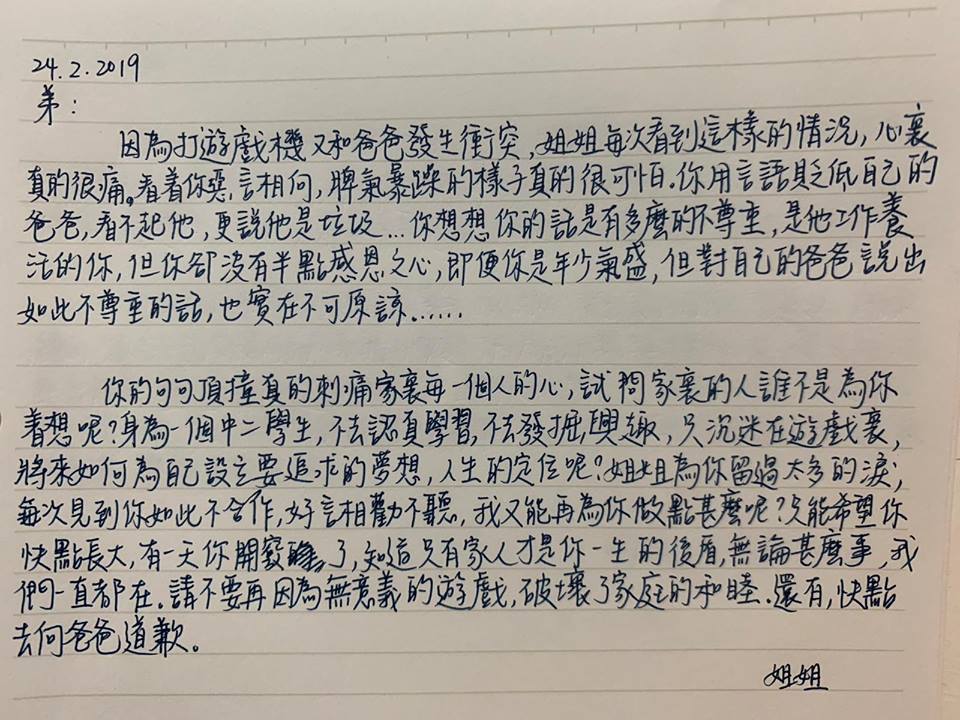 24.2.2019
弟：
因為打遊戲機又和爸爸發生衝突，姐姐每次看到這樣的情況，心裏
真的很痛。看着你惡言相向，脾氣暴躁的樣子真的很可怕．你用言語貶低自己的
爸爸，看不起他，更説他是垃圾…你想想你的話是有多麼的不尊重，是他工作養
活的你，但你卻沒有半點感恩之心，即便你是年少氣盛，但對自己的爸爸說出
如此不尊重的話，也實在不可原諒……
你的句句頂撞真的刺痛家裏每一個人的心，試問家裏的人誰不是為你
着想呢？身為一個中二學生，不去認真學習，不去發掘興趣，只沉迷在遊戲裏，
將來如何為自己設立要追求的夢想，人生的定位呢？姐姐為你留過太多的淚；
每次見到你如此不合作，好言相勸不聽，我又能再為你做點甚麼呢？只能希望你
快點長大，有一天你開竅了，知道只有家人才是你一生的後盾，無論甚麼事，我
們一直都在．請不要再因為無意義的遊戲，破壞了家庭的和睦．還有，快點
去向爸爸道歉。
姐姐